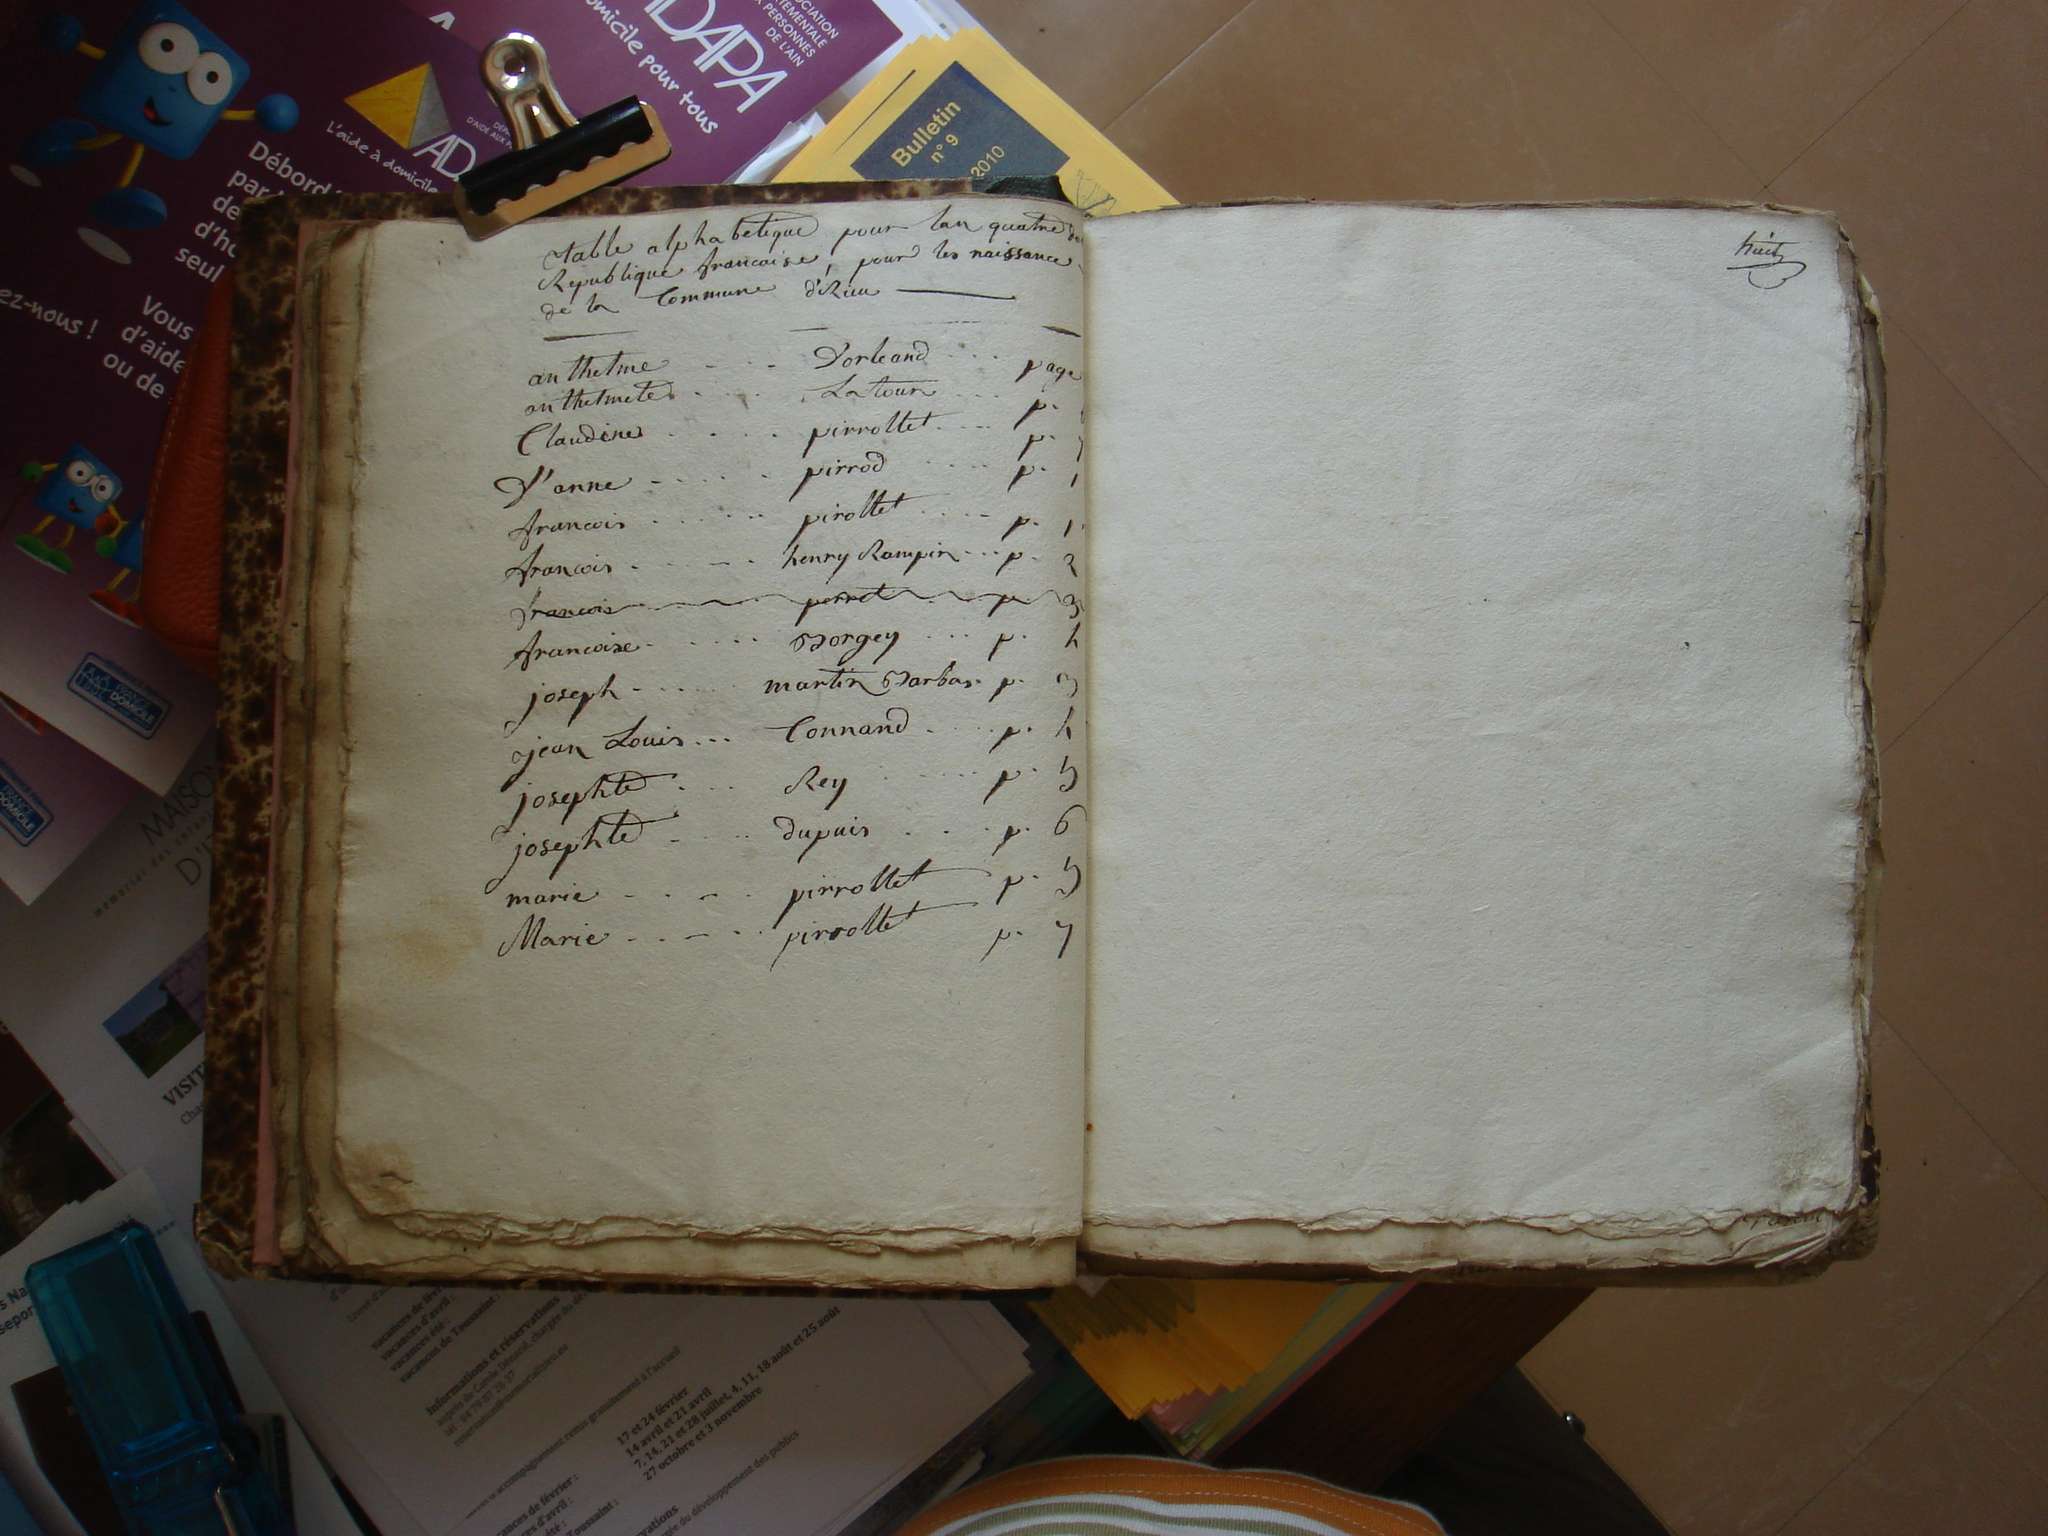 Table alphabetique pour lan quatre de
Republique francaise, pour les naissance
de la Commune
anthelme page
anthelmete Latour p.
Claudine pirrollet p. 7
D'anne pirrod p. 1
francois pirollet p. 1
francois henry Rampin p. 2
francois perret p. 3
francoise Borgey p. 4
joseph martin Barbas p. 3
jean Louis Connand p. 4
josephte Rey p. 5
josephte dupuis p. 6
marie pirrollet p. 5
Marie pirrollet p. 7
huit
ADAPA
SOCIATION
TEMENTALE
X PERSONNES
DE L'AIN
omicile pour tous
L'aide à domicile
AD
Débord
par
de
d'h
seul
Vous
d'aide
ou de
ez-nous !
Bulletin
n° 9
2010
DOMICILE
MAISON
D'I
VISIT
Cha
vacances de
vacances d'avril :
vacances été :
vacances de Toussaint :
Informations et réservations
17 et 24 février
14 avril et 21 avril
7, 14, 21 et 28 juillet, 4, 11, 18 août et 25 août
27 octobre et 3 novembre
ances de février :
d'avril :
été :
Toussaint :
ervations
du développement des publics